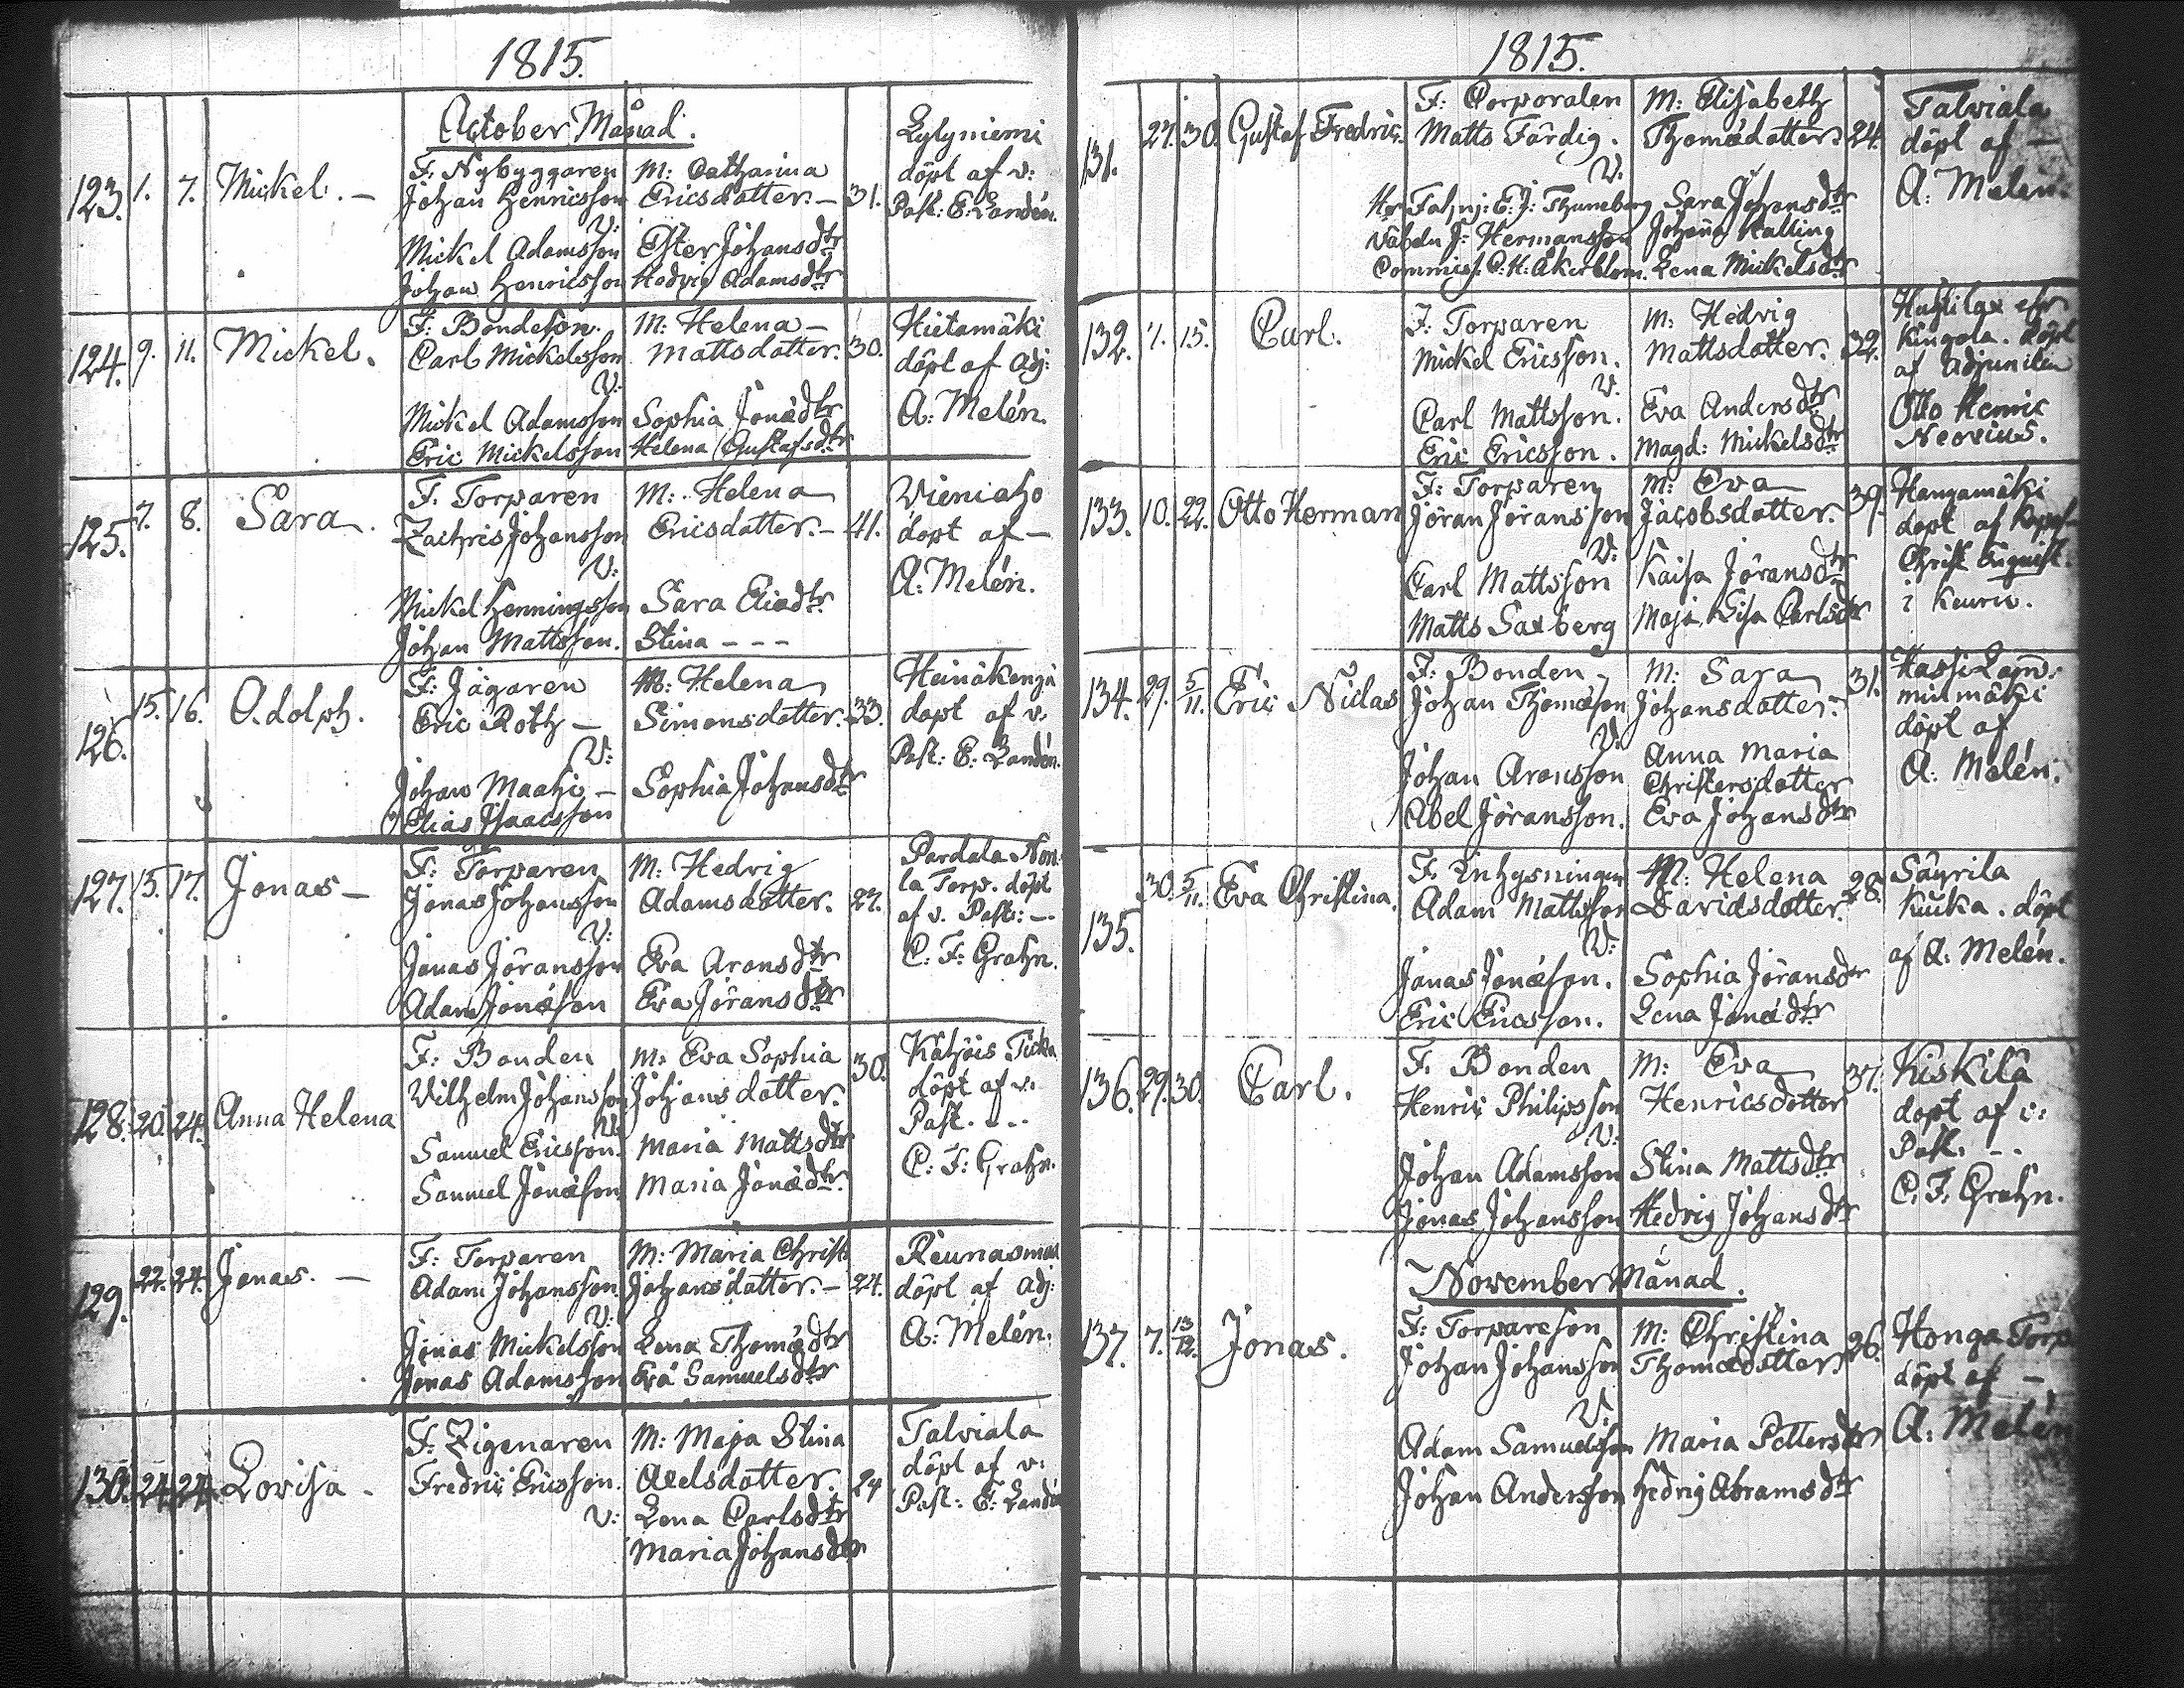 1815.
October Månad.
123. 1. 7. Mickel. — F. Nybyggaren M: Catharina Lylyniemi
Johan Henricsson Ericsdotter. — 31. döpt af v:
V: Past: E: Landén.
Mickel Adamsson Ester Johansdtr
Johan Henricsson Hedvig Adamsdtr
124. 9. 11. Mickel. F: Bondeson. M: Helena — Hietamäki
Carl Mickelsson Mattsdotter. 30. döpt af Adj:
V: A: Melén.
Mickel Adamsson Sophia Jonædtr
Eric Mickelsson Helena Gustafsdtr
125. 7. 8. Sara. F. Torparen M: Helena Vieniaho
Zachris Johansson Ericsdotter. — 41. döpt af —
V: A: Melén.
Mickel Henningsson Sara Eliædtr
Johan Mattsson. Stina - - -
126. 15. 16. Adolph. F: Jägaren M: Helena Heinäkengä
Eric Roth — Simonsdotter. 33. döpt af v.
V: Past: E: Landén.
Johan Maahi — Sophia Johansdtr
Elias Isaacsson
127. 15. 17. Jonas — F: Torparen M: Hedvig Pardala Non-
Jonas Johansson Adamsdotter. 27. la Torp. döpt
V: af v. Past: —
Jonas Jöransson Eva Aronsdtr C. F: Grahn.
Adam Jonæson Eva Jöransdtr
128. 20. 24. Anna Helena F: Bonden M: Eva Sophia 30. Kähöis Ticka
Vilhelm Johansson Johansdotter. döpt af v.
V: Past. - - -
Samuel Ericsson. Maria Mattsdtr C: F: Grahn.
Samuel Jonæson Maria Jonædtr.
129. 22. 24. Jonas. — F: Torparen M: Maria Christ:
Adam Johansson. Johansdotter. — 24. döpt af Adj:
V: A: Melén.
Jonas Mickelsson Lena Thomædtr
Jonas Adamsson Eva Samuelsdtr
130. 24. 24. Lovisa. F: Zigenaren M: Maja Stina Talviala
Fredric Ericsson. Axelsdotter. 24 döpt af v:
V: Lena Carlsdtr Past: E: Landén
Maria Johansdtr
1815.
131. 27. 30. Gustaf Fredric. F: Corporalen M: Elisabeth Talviala
Matts Färdig. Thomædotter. 24. döpt af —
V: A: Melén.
Hr Fahnj: E. J: Thuneberg Sara Johansdtr
Väbeln J: Hermansson Johanna Kalling
Commiss: C: H: Åkerblom. Lena Mickelsdtr
132. 7. 15. Carl. F: Torparen M: Hedvig
Mickel Ericsson. Mattsdotter. 32. Kingola. döpt
V. af Adjuncten
Carl Mattsson. Eva Andersdtr Otto Henric
Eric Ericsson. Magd: Mickelsdtr Neovius.
133. 10. 22. Otto Herman F: Torparen M: Eva 39. Hangamäki
Jöran Jöransson Jacobsdotter. döpt af
V: Christ:
Carl Mattsson Kaisa Jöransdtr i Keuru.
Matts Saxberg Maja Lisa Carlsdtr
134. 29. 5/11. Eric Niclas F: Bonden M: Sara 31.
Johan Thomæson Johansdotter.
V: döpt af
Johan Aronsson Anna Maria A: Melén.
Christersdotter
Abel Jöransson. Eva Johansdtr
135. 30. 5/11. Eva Christina. F. Inhysningen M: Helena 28. Säyrilä
Adam Mattsson Davidsdotter. Kucka. döpt
V: af A: Melén.
Jonas Jonæson. Sophia Jöransdtr
Eric Ericsson. Lena Jonædtr
136. 29. 30. Carl. F. Bonden M: Eva 37. Kiskilä
Henric Philipsson Henricsdotter döpt af v:
V: Past. - -
Johan Adamsson Stina Mattsdtr C. F. Grahn.
Jonas Johansson Hedvig Johansdtr
November Månad.
137. 7. 13/12. Jonas. F: Torpareson M: Christina 26. Honga Torp
Johan Johansson Thomædotter. döpt af —
V: A: Melén
Adam Samuelsson Maria Pettersdtr
Johan Andersson Hedvig Abramsdtr